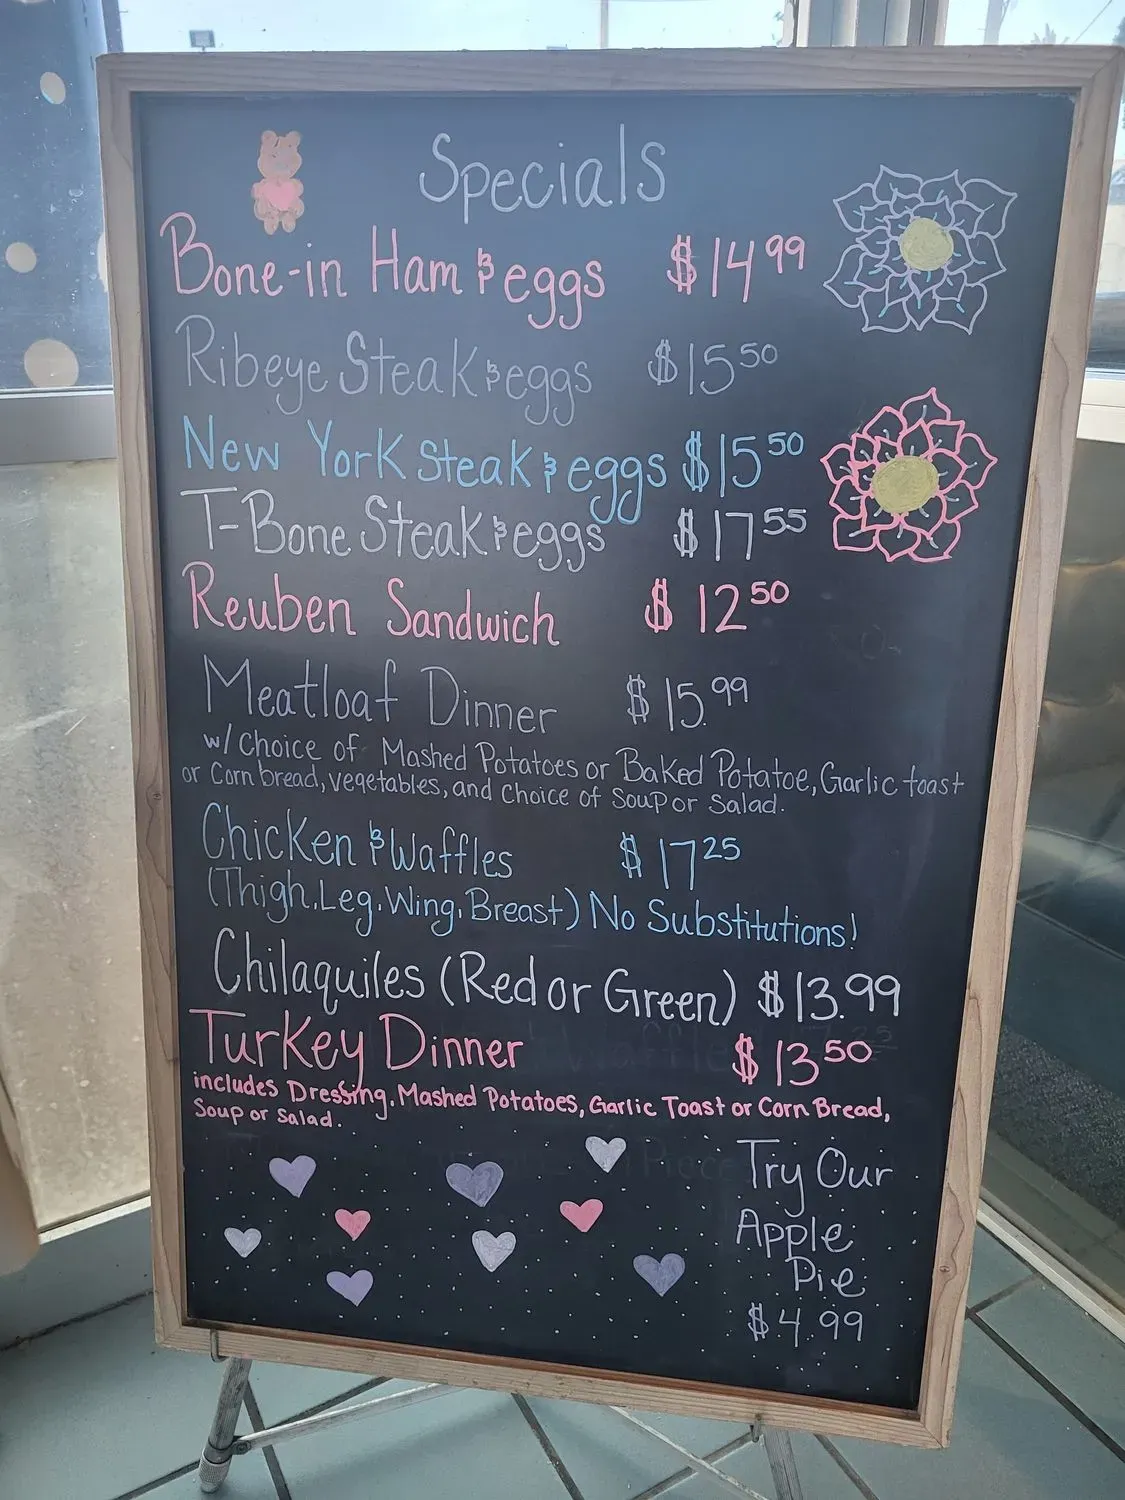 Specials
Bone-in Ham & eggs $14.99
Ribeye Steak & eggs $15.50
New York Steak & eggs $15.50
T-Bone Steak & eggs $17.55
Reuben Sandwich $12.50
Meatloaf Dinner $15.99
w/ Choice of Mashed Potatoes or Baked Potatoe, Garlic toast
or Corn bread, vegetables, and Choice of Soup or Salad.
Chicken & Waffles $17.25
(Thigh, Leg, Wing, Breast) No Substitutions!
Chilaquiles (Red or Green) $13.99
Turkey Dinner $13.50
includes Dressing, Mashed Potatoes, Garlic Toast or Corn Bread,
Soup or Salad.
Try Our
Apple
Pie
$4.99